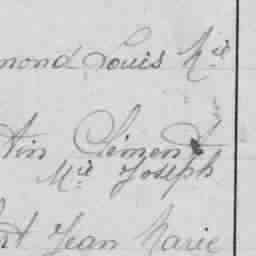 mond Louis Mie
tin Clément
Mie Joseph
rt Jean Marie